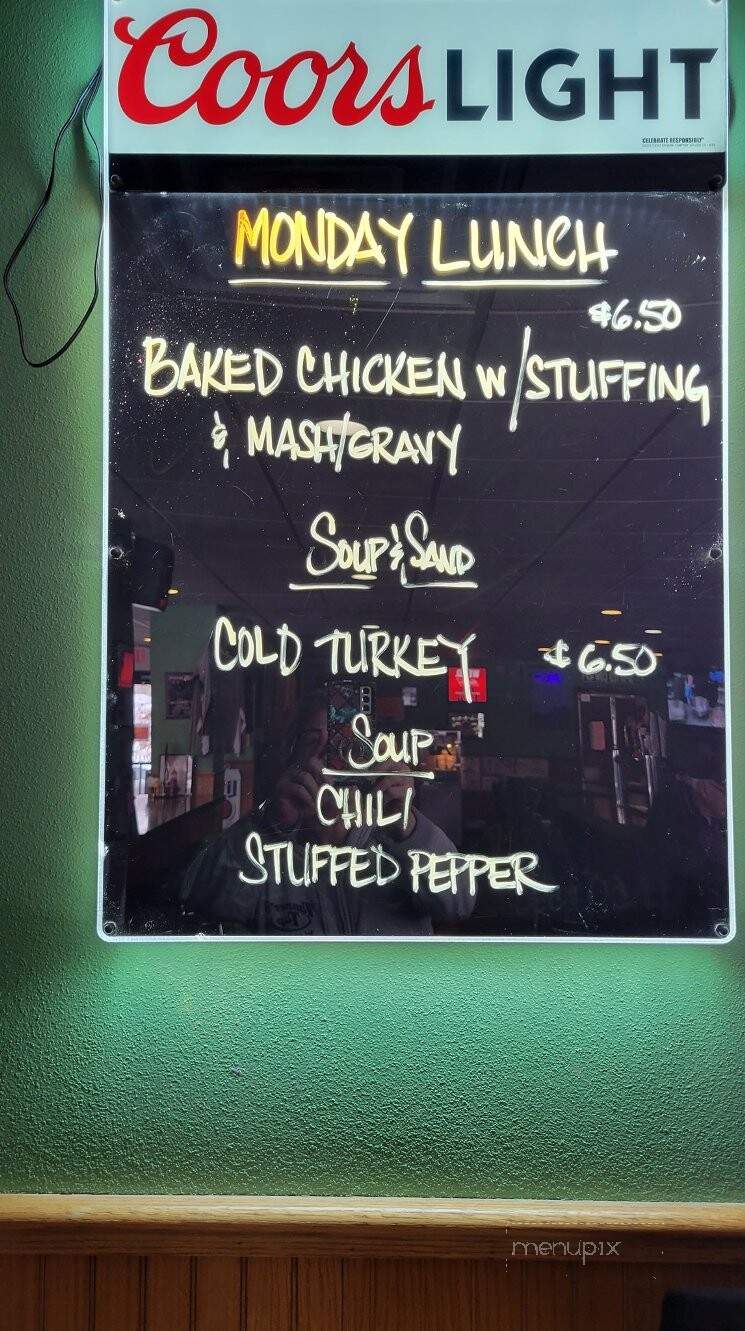 Coors LIGHT
CELEBRATE RESPONSIBLY®
MONDAY LUNCH
$6.50
BAKED CHICKEN W/STUFFING
& MASH/GRAVY
SOUP & SAND
COLD TURKEY $6.50
SOUP
CHILI
STUFFED PEPPER
menupix